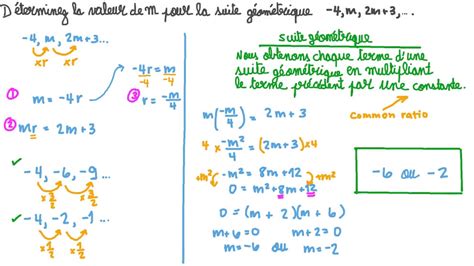 Déterminez la valeur de m pour la suite géométrique -4, m, 2m+3,...
-4, m, 2m+3...
xr xr
① m = -4r
② mr = 2m+3
-4r = m
-4 -4
③ r = -m/4
✓ -4, -6, -9...
x3/2 x3/2
✓ -4, -2, -1...
x1/2 x1/2
suite géométrique
Nous obtenons chaque terme d'une
suite géométrique en multipliant
le terme précédent par une constante.
common ratio
m(-m/4) = 2m+3
4 x -m²/4 = (2m+3) x4
+m² -m² = 8m+12 +m²
0 = m²+8m+12
0 = (m + 2)(m + 6)
m+6=0 m+2=0
m=-6 ou m=-2
-6 ou -2